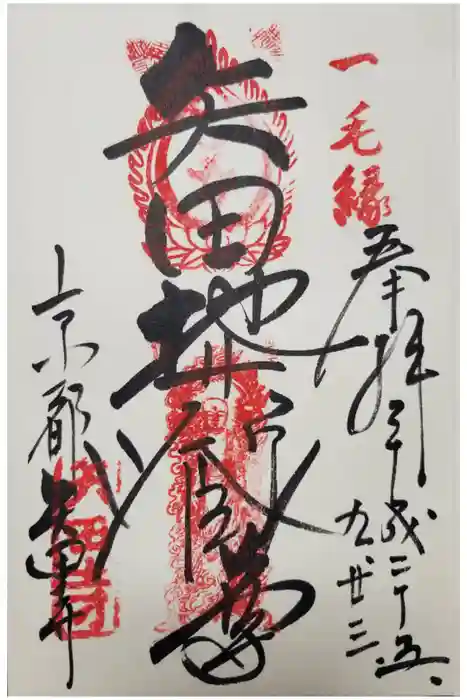 一毛縁
奉拝 平成二十五
九 廿三
矢田地蔵尊
京都 矢田寺